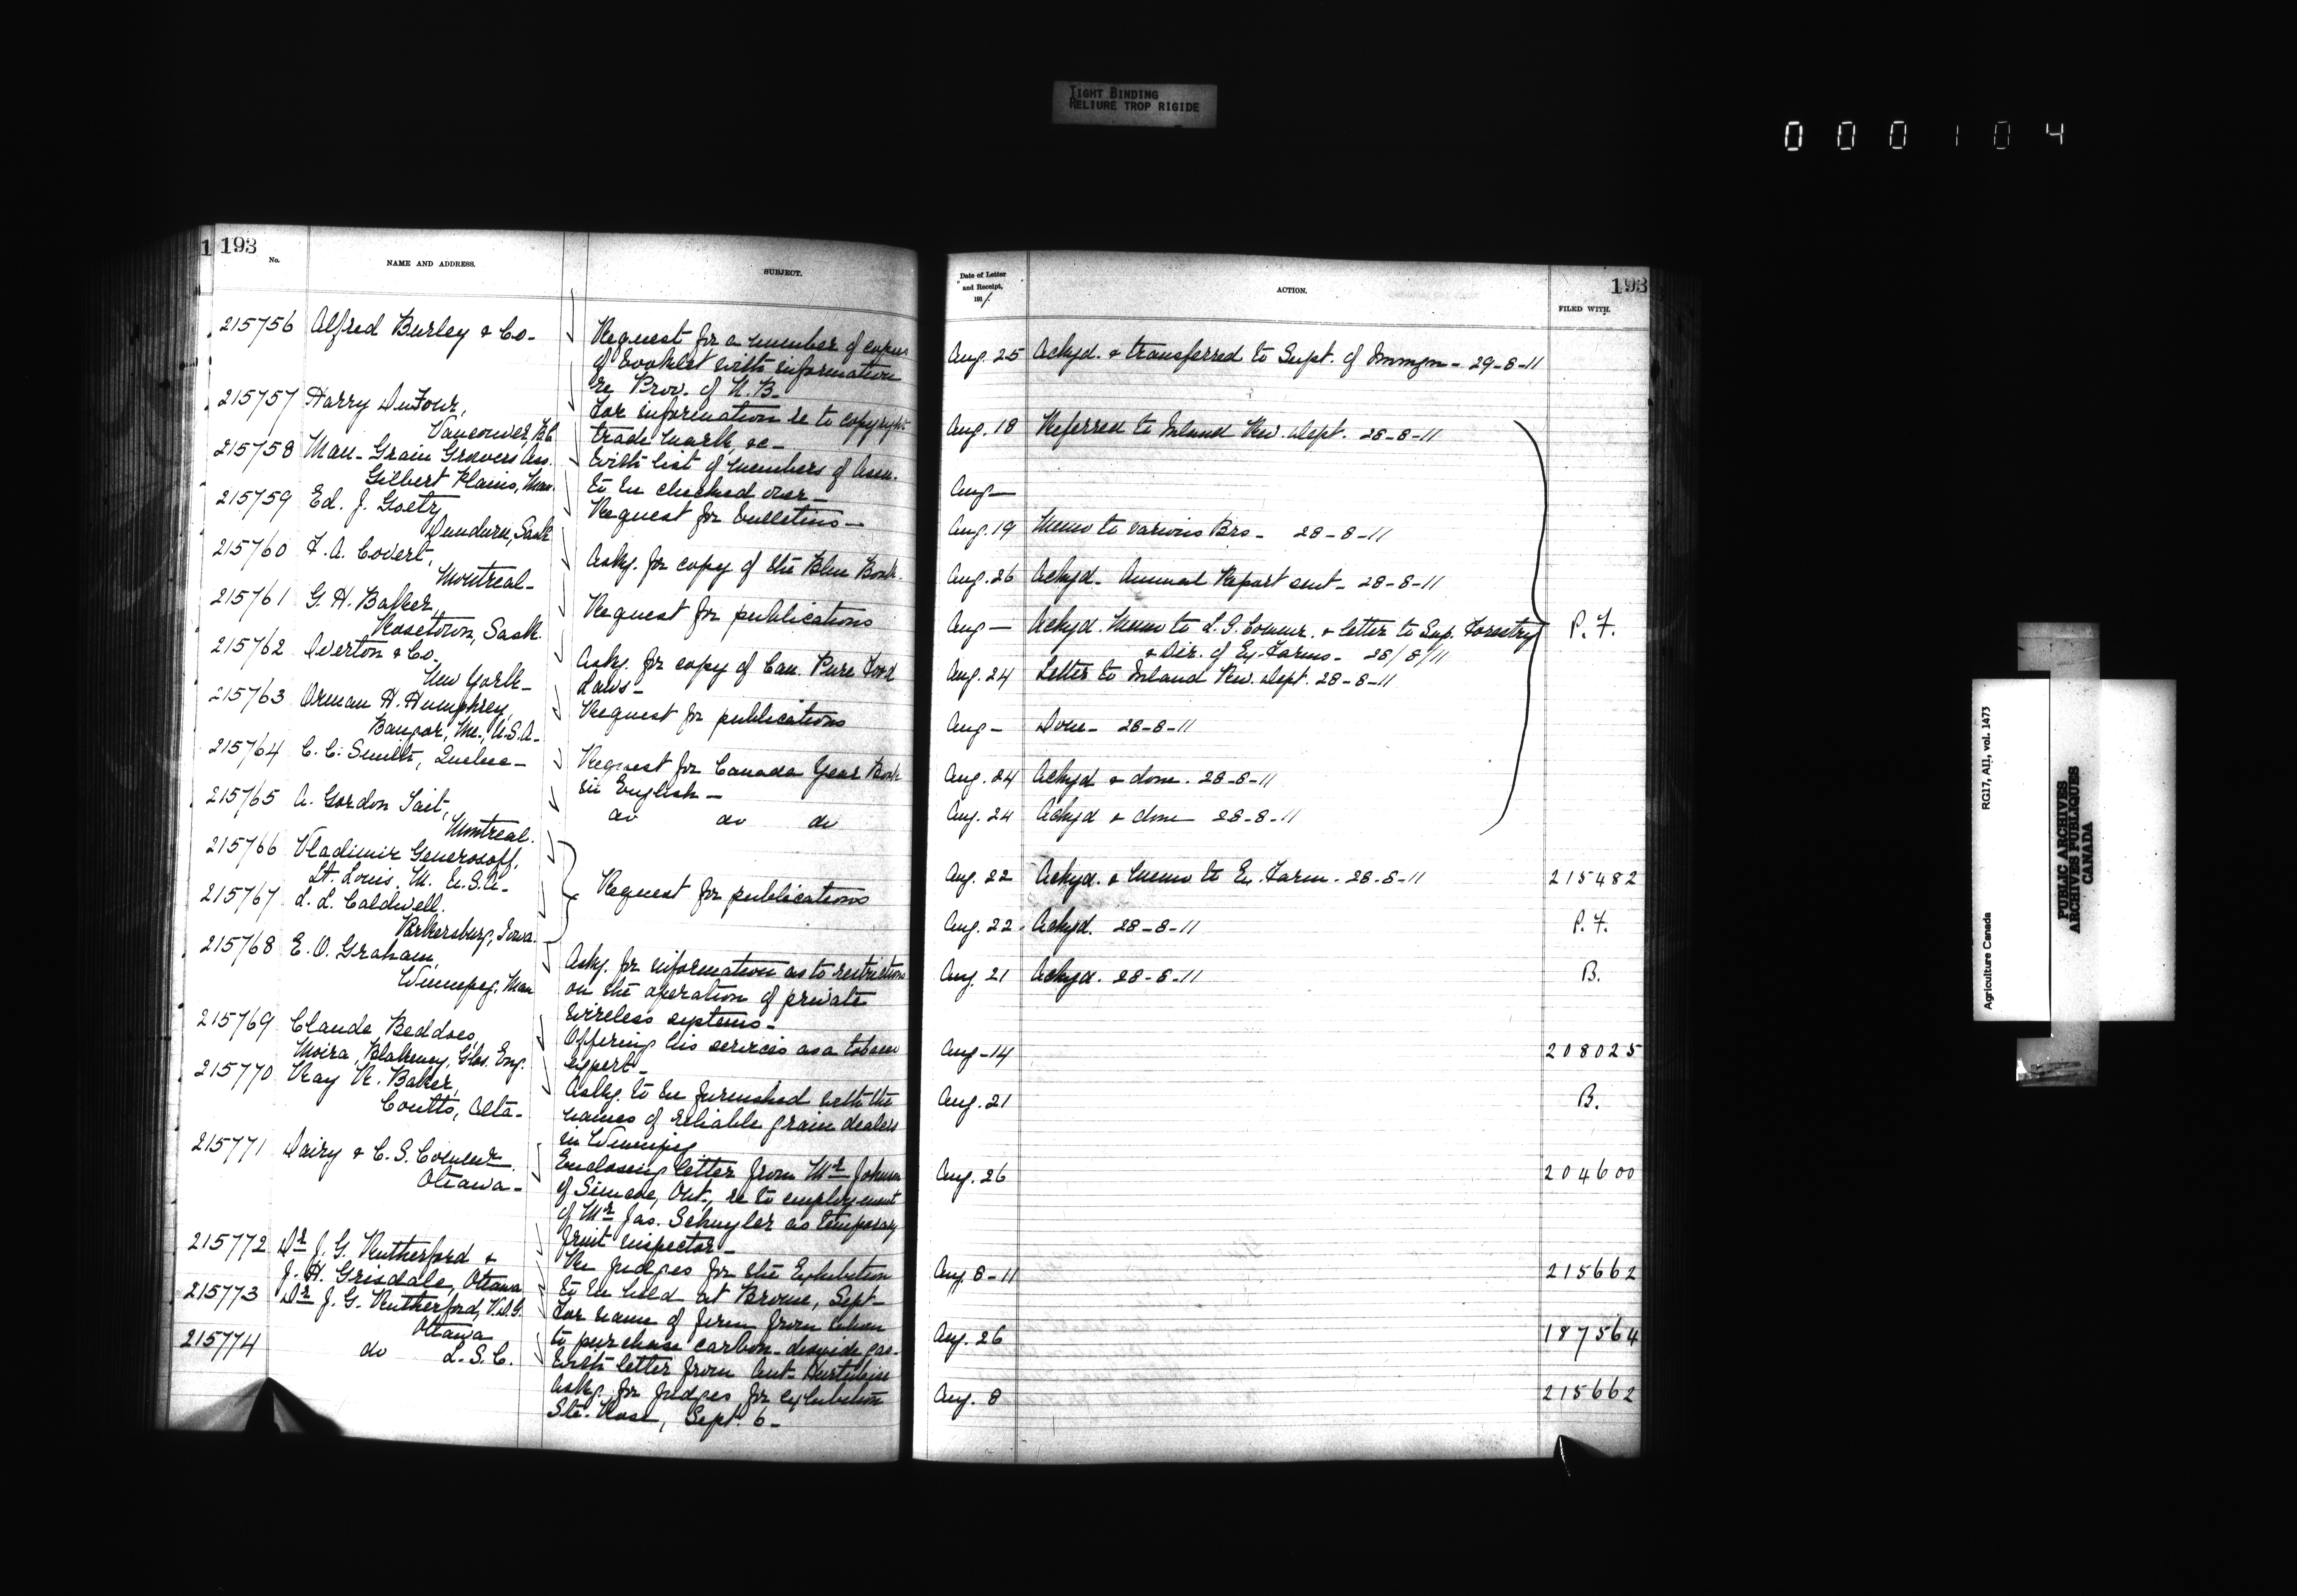 TIGHT BINDING
RELIURE TROP RIGIDE
000104
1 193
No.
NAME AND ADDRESS.
SUBJECT.
215756 Alfred Burley & Co-
Request for a number of copies
of booklet with information
re Prov. of N.B-
215757 Harry DuFour,
Vancouver, B.C.
For information re to copyright
trade mark, &c-
215758 Man- Grain Growers Ass.
Gilbert Plains, Man.
With list of members of Assn.
to be checked over-
215759 Ed. J. Goetz
Dundurn, Sask
Request for bulletins-
215760 F. A. Covert,
Montreal-
Askg. for copy of the Blue Book.
215761 G. H. Baker,
Rosetown, Sask.
Request for publications
215762 Overton & Co.
New York-
Askg. for copy of Can. Pure Food
Laws-
215763 Orman H. Humphrey,
Bangor, Me., U.S.A-
Request for publications
215764 C. C. Smith, Quebec-
Request for Canada Year Book
in English-
215765 A. Gordon Tait,
Montreal.
do do do
215766 Vladimir Generosoff,
St. Louis, M. U.S.A-
215767 L. L. Caldwell.
Parkersburg, Iowa.
Request for publications
215768 E. O. Graham,
Winnipeg. Man
Askg. for information as to restriction
on the operation of private
wireless systems-
215769 Claude Beddoes,
Moira, Blakeney, Glos. Eng.
Offering his services as a tobacco
expert-
215770 Ray R. Baker,
Coutts, Alta-
Askg. to be furnished with the
names of reliable grain dealers
in Winnipeg
215771 Dairy & C. S. Commr.
Ottawa-
Enclosing letter from Mr Johnson
of Simcoe, Ont., re to employment
of Mr Jas. Schuyler as temporary
fruit inspector-
215772 Dr J. G. Rutherford &
J. H. Grisdale, Ottawa
Re judges for the Exhibition
to be held at Brome, Sept-
215773 Dr J. G. Rutherford, V.D.G.
Ottawa
For name of firm from whom
to purchase carbon-dioxide gas-
215774 do L.S.C.
With letter from Ant- Hurtubise
askg. for judges for exhibition
Ste. Rose, Sept. 6-
Date of Letter
and Receipt,
1911.
ACTION.
193
FILED WITH.
Aug. 25 Ackgd. & transferred to Supt. of Immgn- 29-8-11
Aug. 18 Referred to Inland Rev. Dept. 28-8-11
Aug-
Aug. 19 Memo to various Brs- 28-8-11
Aug. 26 Ackgd- Annual Report sent- 28-8-11
Aug- Ackgd. Memo to L.S. Commr. & letter to Sup. Forestry P.F.
& Dir. of Ex. Farms- 28/8/11
Aug. 24 Letter to Inland Rev. Dept. 28-8-11
Aug- Done- 28-8-11
Aug. 24 Ackgd & done. 28-8-11
Aug. 24 Ackgd & done 28-8-11
Aug. 22 Ackgd. & memo to Ex. Farm- 28-8-11 215482
Aug. 22. Ackgd. 28-8-11 P.F.
Aug. 21 Ackgd. 28-8-11 B.
Aug-14 208025
Aug. 21 B.
Aug. 26 204600
Aug. 8-11 215662
Aug. 26 187564
Aug. 8 215662
Agriculture Canada RG17, AII, vol. 1473
PUBLIC ARCHIVES
ARCHIVES PUBLIQUES
CANADA